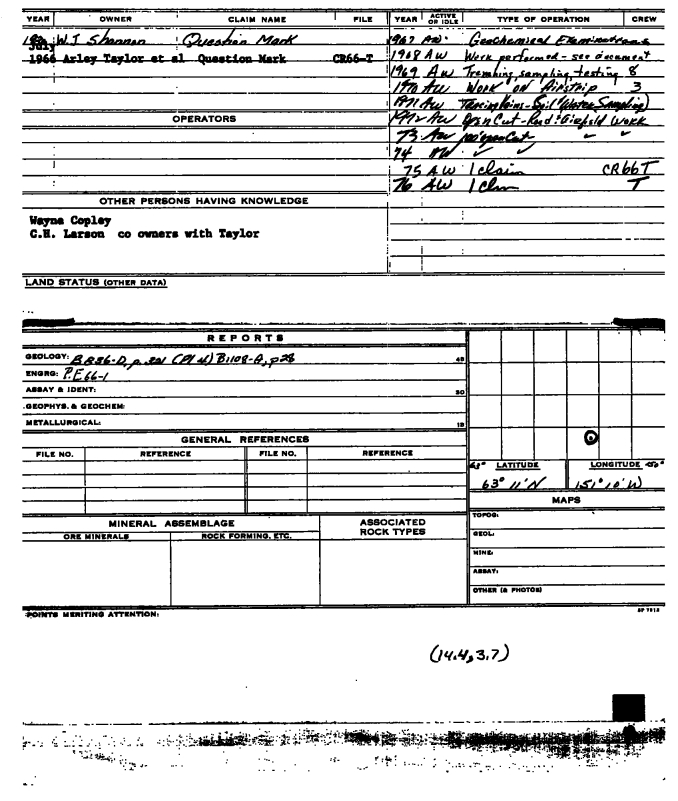 YEAR OWNER CLAIM NAME FILE YEAR ACTIVE OR IDLE TYPE OF OPERATION CREW
W.J. Shannon Question Mark 1967 AW Geochemical Examinations
July
1966 Arley Taylor et al Question Mark CR66-T 1968 AW Work performed - see document
1969 AW Trenching, sampling, testing 8
1970 AW Work on Airstrip 3
1971 AW
OPERATORS
1972 AW Open Cut - Road & Airfield Work
73 AW open Cut ✓ ✓
74 AW ✓ ✓
75 AW 1 claim CR66T
76 AW 1 clm T
OTHER PERSONS HAVING KNOWLEDGE
Wayne Copley
C.H. Larson co owners with Taylor
LAND STATUS (OTHER DATA)
REPORTS
GEOLOGY: B 836-D, p. 321 (Pl 4) B1108-A, p28 45
ENGRG: P.E 66-1
ASSAY & IDENT: 30
GEOPHYS. & GEOCHEM:
METALLURGICAL: 15
GENERAL REFERENCES
FILE NO. REFERENCE FILE NO. REFERENCE
63° LATITUDE LONGITUDE 150°
63° 11' N 151° 10' W
MAPS
MINERAL ASSEMBLAGE
ORE MINERALS ROCK FORMING, ETC.
ASSOCIATED ROCK TYPES
TOPOG:
GEOL:
MINE:
ASSAY:
OTHER (& PHOTOS)
POINTS MERITING ATTENTION:
(14.4, 3.7)